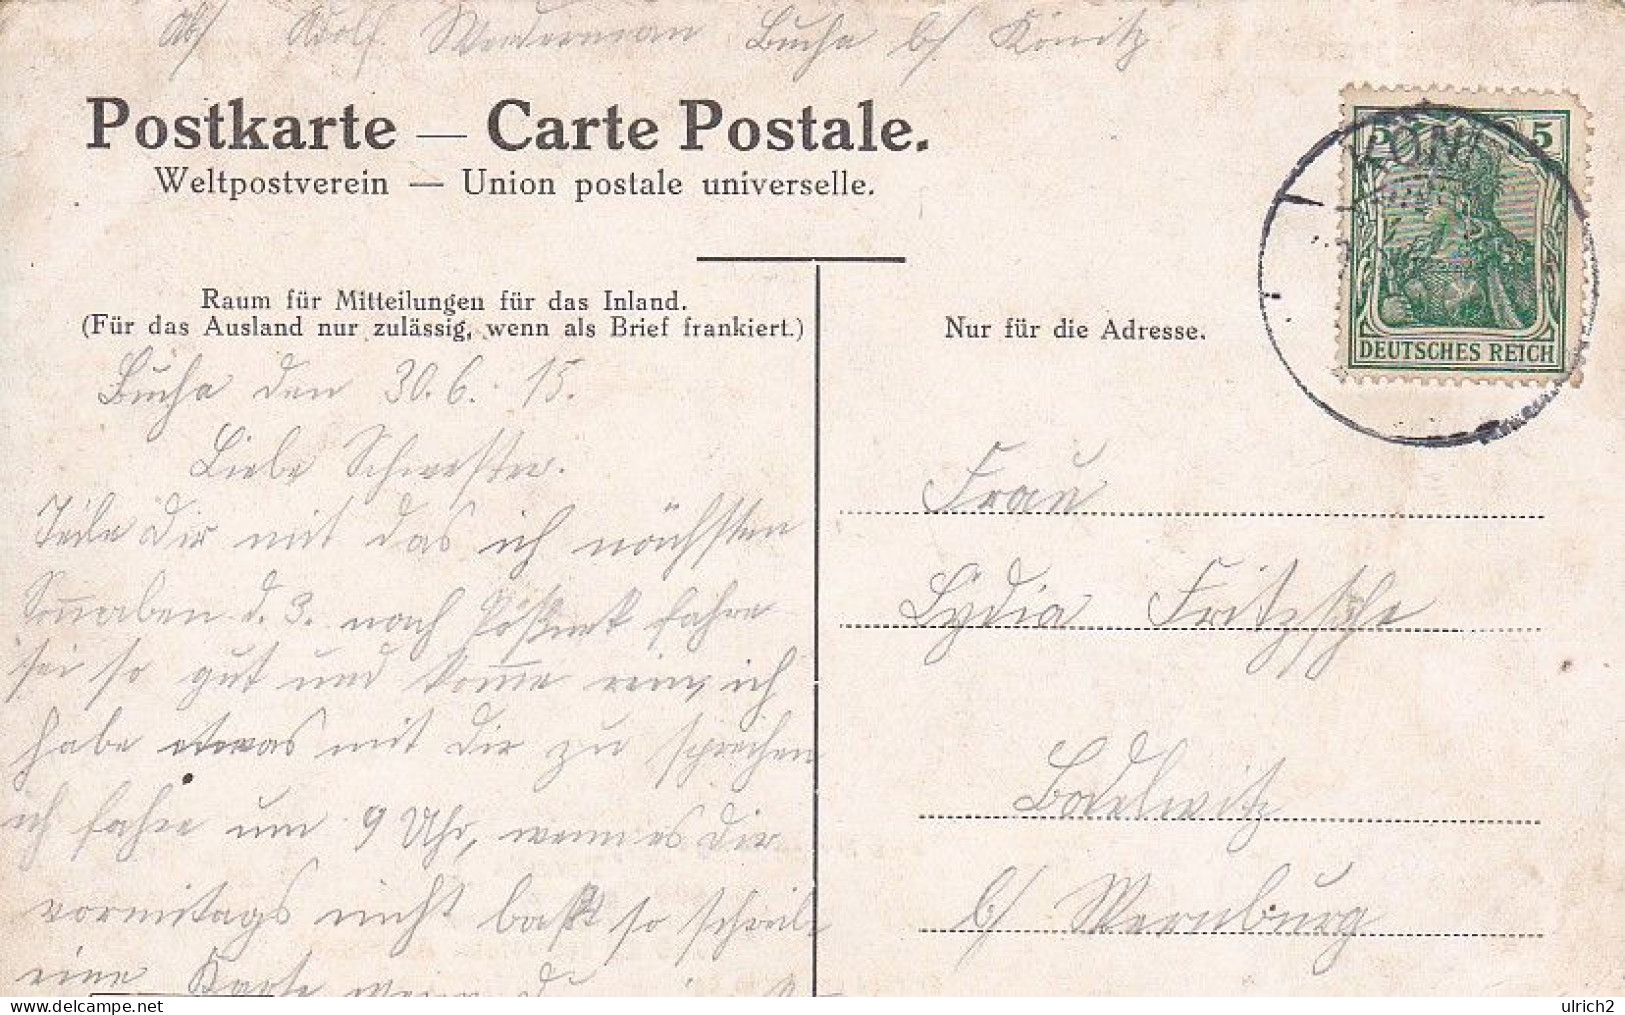 Abs Adolf Wedermann Bucha b/ Könitz
Postkarte — Carte Postale.
Weltpostverein — Union postale universelle.
Raum für Mitteilungen für das Inland.
(Für das Ausland nur zulässig, wenn als Brief frankiert.)
Nur für die Adresse.
5 5
KÖNI
DEUTSCHES REICH
Bucha den 30.6.15.
Liebe Schwester.
Teile Dir mit das ich nächsten
Sonnaben d. 3. nach Pößnek fahre
sei so gut und komme rein, ich
habe etwas mit Dir zu sprechen
ich fahre um 9 Uhr, wenn es Dir
vormitags nicht paßt so schreib
eine Karte wenn d
Frau
Lydia Fritzsche
Bodelwitz
b/ Wernburg
ulrich2